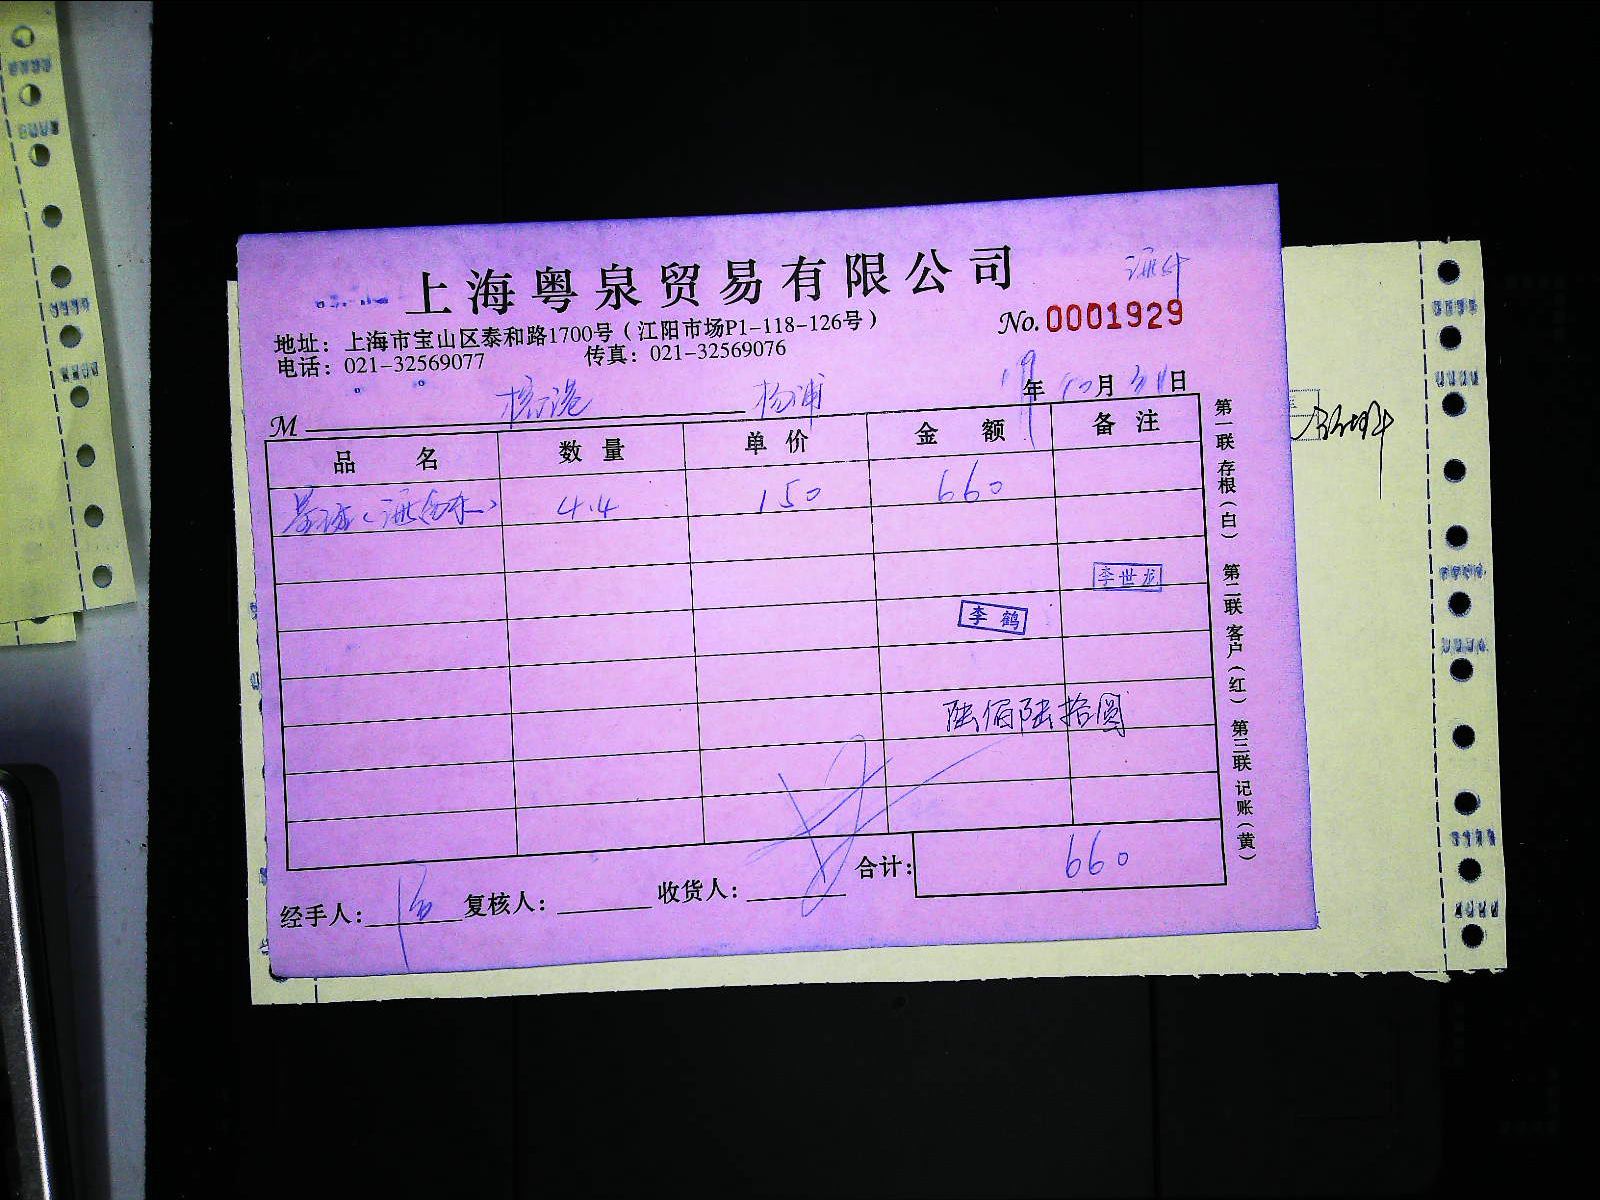 上海粤泉贸易有限公司
地址：上海市宝山区泰和路1700号（江阳市场P1-118-126号）
No. 0001929
电话：021-32569077 传真：021-32569076
M 杨浦 19年10月31日
品名 数量 单价 金额 备注
4.4 150 660
李世龙
李鹤
陆佰陆拾圆
合计： 660
经手人： 复核人： 收货人：
第一联 存根（白） 第二联 客户（红） 第三联 记账（黄）